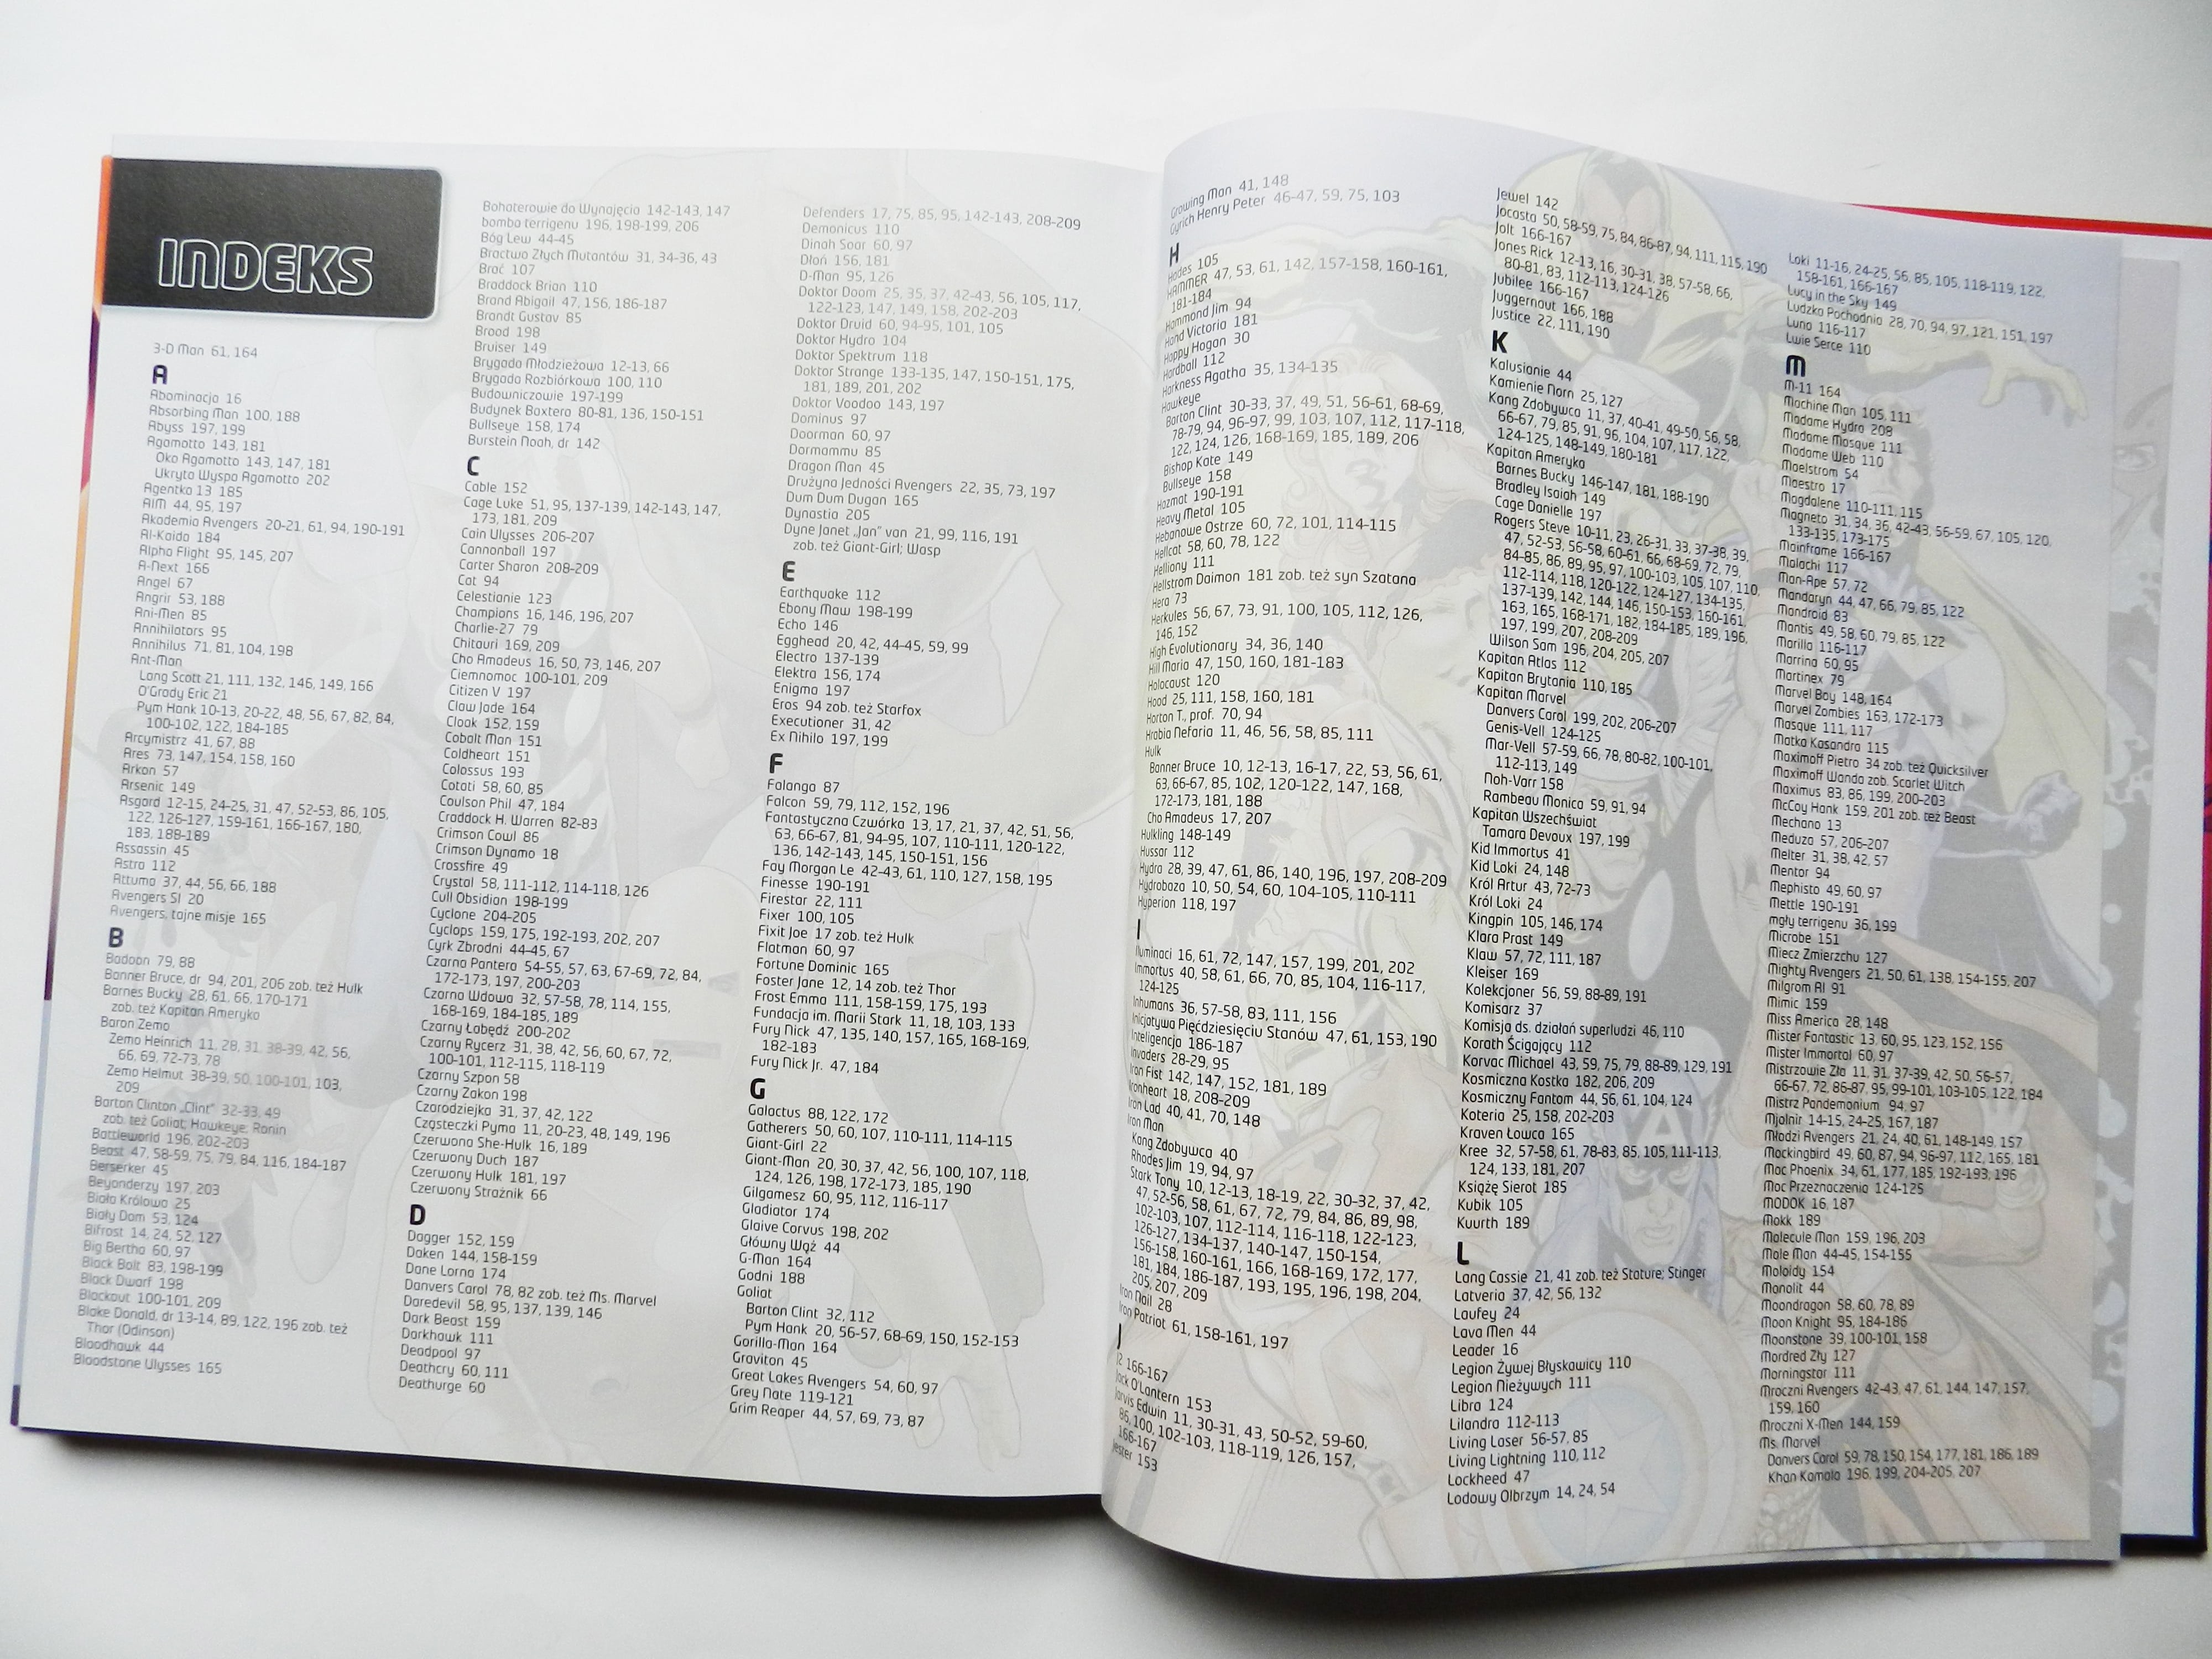 INDEKS
3-D Man 61, 164
A
Abominacja 16
Absorbing Man 100, 188
Abyss 197, 199
Agamotto 143, 181
Oko Agamotto 143, 147, 181
Ukryta Wyspa Agamotto 202
Agentka 13 185
AIM 44, 95, 197
Akademia Avengers 20-21, 61, 94, 190-191
Al-Kaida 184
Alpha Flight 95, 145, 207
A-Next 166
Angel 67
Angrir 53, 188
Ani-Men 85
Annihilators 95
Annihilus 71, 81, 104, 198
Ant-Man
Lang Scott 21, 111, 132, 146, 149, 166
O'Grady Eric 21
Pym Hank 10-13, 20-22, 48, 56, 67, 82, 84,
100-102, 122, 184-185
Arcymistrz 41, 67, 88
Ares 73, 147, 154, 158, 160
Arkon 57
Arsenic 149
Asgard 12-15, 24-25, 31, 47, 52-53, 86, 105,
122, 126-127, 159-161, 166-167, 180,
183, 188-189
Assassin 45
Astra 112
Attuma 37, 44, 56, 66, 188
Avengers SI 20
Avengers, tajne misje 165
B
Badoon 79, 88
Banner Bruce, dr 94, 201, 206 zob. też Hulk
Barnes Bucky 28, 61, 66, 170-171
zob. też Kapitan Ameryka
Baron Zemo
Zemo Heinrich 11, 28, 31, 38-39, 42, 56,
66, 69, 72-73, 78
Zemo Helmut 38-39, 50, 100-101, 103,
209
Barton Clinton „Clint” 32-33, 49
zob. też Goliat; Hawkeye; Ronin
Battleworld 196, 202-203
Beast 47, 58-59, 75, 79, 84, 116, 184-187
Berserker 45
Beyonderzy 197, 203
Biała Królowa 25
Biały Dom 53, 124
Bifrost 14, 24, 52, 127
Big Bertha 60, 97
Black Bolt 83, 198-199
Black Dwarf 198
Blackout 100-101, 209
Blake Donald, dr 13-14, 89, 122, 196 zob. też
Thor (Odinson)
Bloodhawk 44
Bloodstone Ulysses 165
Bohaterowie do Wynajęcia 142-143, 147
bomba terrigenu 196, 198-199, 206
Bóg Lew 44-45
Bractwo Złych Mutantów 31, 34-36, 43
Brać 107
Braddock Brian 110
Brand Abigail 47, 156, 186-187
Brandt Gustav 85
Brood 198
Bruiser 149
Brygada Młodzieżowa 12-13, 66
Brygada Rozbiórkowa 100, 110
Budowniczowie 197-199
Budynek Baxtera 80-81, 136, 150-151
Bullseye 158, 174
Burstein Noah, dr 142
C
Cable 152
Cage Luke 51, 95, 137-139, 142-143, 147,
173, 181, 209
Cain Ulysses 206-207
Cannonball 197
Carter Sharon 208-209
Cat 94
Celestianie 123
Champions 16, 146, 196, 207
Charlie-27 79
Chitauri 169, 209
Cho Amadeus 16, 50, 73, 146, 207
Ciemnomoc 100-101, 209
Citizen V 197
Claw Jade 164
Cloak 152, 159
Cobalt Man 151
Coldheart 151
Colossus 193
Cotati 58, 60, 85
Coulson Phil 47, 184
Craddock H. Warren 82-83
Crimson Cowl 86
Crimson Dynamo 18
Crossfire 49
Crystal 58, 111-112, 114-118, 126
Cull Obsidian 198-199
Cyclone 204-205
Cyclops 159, 175, 192-193, 202, 207
Cyrk Zbrodni 44-45, 67
Czarna Pantera 54-55, 57, 63, 67-69, 72, 84,
172-173, 197, 200-203
Czarna Wdowa 32, 57-58, 78, 114, 155,
168-169, 184-185, 189
Czarny Łabędź 200-202
Czarny Rycerz 31, 38, 42, 56, 60, 67, 72,
100-101, 112-115, 118-119
Czarny Szpon 58
Czarny Zakon 198
Czarodziejka 31, 37, 42, 122
Cząsteczki Pyma 11, 20-23, 48, 149, 196
Czerwona She-Hulk 16, 189
Czerwony Duch 187
Czerwony Hulk 181, 197
Czerwony Strażnik 66
D
Dagger 152, 159
Daken 144, 158-159
Dane Lorna 174
Danvers Carol 78, 82 zob. też Ms. Marvel
Daredevil 58, 95, 137, 139, 146
Dark Beast 159
Darkhawk 111
Deadpool 97
Deathcry 60, 111
Deathurge 60
Defenders 17, 75, 85, 95, 142-143, 208-209
Demonicus 110
Dinah Soar 60, 97
Dłoń 156, 181
D-Man 95, 126
Doktor Doom 25, 35, 37, 42-43, 56, 105, 117,
122-123, 147, 149, 158, 202-203
Doktor Druid 60, 94-95, 101, 105
Doktor Hydro 104
Doktor Spektrum 118
Doktor Strange 133-135, 147, 150-151, 175,
181, 189, 201, 202
Doktor Voodoo 143, 197
Dominus 97
Doorman 60, 97
Dormammu 85
Dragon Man 45
Drużyna Jedności Avengers 22, 35, 73, 197
Dum Dum Dugan 165
Dynastia 205
Dyne Janet „Jan” van 21, 99, 116, 191
zob. też Giant-Girl; Wasp
E
Earthquake 112
Ebony Maw 198-199
Echo 146
Egghead 20, 42, 44-45, 59, 99
Electro 137-139
Elektra 156, 174
Enigma 197
Eros 94 zob. też Starfox
Executioner 31, 42
Ex Nihilo 197, 199
F
Falanga 87
Falcon 59, 79, 112, 152, 196
Fantastyczna Czwórka 13, 17, 21, 37, 42, 51, 56,
63, 66-67, 81, 94-95, 107, 110-111, 120-122,
136, 142-143, 145, 150-151, 156
Fay Morgan Le 42-43, 61, 110, 127, 158, 195
Finesse 190-191
Firestar 22, 111
Fixer 100, 105
Fixit Joe 17 zob. też Hulk
Flatman 60, 97
Fortune Dominic 165
Foster Jane 12, 14 zob. też Thor
Frost Emma 111, 158-159, 175, 193
Fundacja im. Marii Stark 11, 18, 103, 133
Fury Nick 47, 135, 140, 157, 165, 168-169,
182-183
Fury Nick Jr. 47, 184
G
Galactus 88, 122, 172
Gatherers 50, 60, 107, 110-111, 114-115
Giant-Girl 22
Giant-Man 20, 30, 37, 42, 56, 100, 107, 118,
124, 126, 198, 172-173, 185, 190
Gilgamesz 60, 95, 112, 116-117
Gladiator 174
Glaive Corvus 198, 202
Główny Wąż 44
G-Man 164
Godni 188
Goliat
Barton Clint 32, 112
Pym Hank 20, 56-57, 68-69, 150, 152-153
Gorilla-Man 164
Graviton 45
Great Lakes Avengers 54, 60, 97
Grey Nate 119-121
Grim Reaper 44, 57, 69, 73, 87
Growing Man 41, 148
Gyrich Henry Peter 46-47, 59, 75, 103
H
Hades 105
HAMMER 47, 53, 61, 142, 157-158, 160-161,
181-184
Hammond Jim 94
Hand Victoria 181
Happy Hogan 30
Hardball 112
Harkness Agatha 35, 134-135
Hawkeye
Barton Clint 30-33, 37, 49, 51, 56-61, 68-69,
78-79, 94, 96-97, 99, 103, 107, 112, 117-118,
122, 124, 126, 168-169, 185, 189, 206
Bishop Kate 149
Bullseye 158
Hazmat 190-191
Heavy Metal 105
Hebanowe Ostrze 60, 72, 101, 114-115
Hellcat 58, 60, 78, 122
Helliony 111
Hellstrom Daimon 181 zob. też syn Szatana
Hera 73
Herkules 56, 67, 73, 91, 100, 105, 112, 126,
146, 152
High Evolutionary 34, 36, 140
Hill Maria 47, 150, 160, 181-183
Holocaust 120
Hood 25, 111, 158, 160, 181
Horton T., prof. 70, 94
Hrabia Nefaria 11, 46, 56, 58, 85, 111
Hulk
Banner Bruce 10, 12-13, 16-17, 22, 53, 56, 61,
63, 66-67, 85, 102, 120-122, 147, 168,
172-173, 181, 188
Cho Amadeus 17, 207
Hulkling 148-149
Hussar 112
Hydra 28, 39, 47, 61, 86, 140, 196, 197, 208-209
Hydrobaza 10, 50, 54, 60, 104-105, 110-111
Hyperion 118, 197
I
Iluminaci 16, 61, 72, 147, 157, 199, 201, 202
Immortus 40, 58, 61, 66, 70, 85, 104, 116-117,
124-125
Inhumans 36, 57-58, 83, 111, 156
Inicjatywa Pięćdziesięciu Stanów 47, 61, 153, 190
Inteligencja 186-187
Invaders 28-29, 95
Iron Fist 142, 147, 152, 181, 189
Ironheart 18, 208-209
Iron Lad 40, 41, 70, 148
Iron Man
Kang Zdobywca 40
Rhodes Jim 19, 94, 97
Stark Tony 10, 12-13, 18-19, 22, 30-32, 37, 42,
47, 52-56, 58, 61, 67, 72, 79, 84, 86, 89, 98,
102-103, 107, 112-114, 116-118, 122-123,
126-127, 134-137, 140-147, 150-154,
156-158, 160-161, 166, 168-169, 172, 177,
181, 184, 186-187, 193, 195, 196, 198, 204,
205, 207, 209
Iron Nail 28
Iron Patriot 61, 158-161, 197
J
J2 166-167
Jack O'Lantern 153
Jarvis Edwin 11, 30-31, 43, 50-52, 59-60,
86, 100, 102-103, 118-119, 126, 157,
166-167
Jester 153
Jewel 142
Jocasta 50, 58-59, 75, 84, 86-87, 94, 111, 115, 190
Jolt 166-167
Jones Rick 12-13, 16, 30-31, 38, 57-58, 66,
80-81, 83, 112-113, 124-126
Jubilee 166-167
Juggernaut 166, 188
Justice 22, 111, 190
K
Kalusianie 44
Kamienie Norn 25, 127
Kang Zdobywca 11, 37, 40-41, 49-50, 56, 58,
66-67, 79, 85, 91, 96, 104, 107, 117, 122,
124-125, 148-149, 180-181
Kapitan Ameryka
Barnes Bucky 146-147, 181, 188-190
Bradley Isaiah 149
Cage Danielle 197
Rogers Steve 10-11, 23, 26-31, 33, 37-38, 39,
47, 52-53, 56-58, 60-61, 66, 68-69, 72, 79,
84-85, 86, 89, 95, 97, 100-103, 105, 107, 110,
112-114, 118, 120-122, 124-127, 134-135,
137-139, 142, 144, 146, 150-153, 160-161,
163, 165, 168-171, 182, 184-185, 189, 196,
197, 199, 207, 208-209
Wilson Sam 196, 204, 205, 207
Kapitan Atlas 112
Kapitan Brytania 110, 185
Kapitan Marvel
Danvers Carol 199, 202, 206-207
Genis-Vell 124-125
Mar-Vell 57-59, 66, 78, 80-82, 100-101,
112-113, 149
Noh-Varr 158
Rambeau Monica 59, 91, 94
Kapitan Wszechświat
Tamara Devoux 197, 199
Kid Immortus 41
Kid Loki 24, 148
Król Artur 43, 72-73
Król Loki 24
Kingpin 105, 146, 174
Klara Prast 149
Klaw 57, 72, 111, 187
Kleiser 169
Kolekcjoner 56, 59, 88-89, 191
Komisarz 37
Komisja ds. działań superludzi 46, 110
Korath Ścigający 112
Korvac Michael 43, 59, 75, 79, 88-89, 129, 191
Kosmiczna Kostka 182, 206, 209
Kosmiczny Fantom 44, 56, 61, 104, 124
Koteria 25, 158, 202-203
Kraven Łowca 165
Kree 32, 57-58, 61, 78-83, 85, 105, 111-113,
124, 133, 181, 207
Książę Sierot 185
Kubik 105
Kuurth 189
L
Lang Cassie 21, 41 zob. też Stature; Stinger
Latveria 37, 42, 56, 132
Laufey 24
Lava Men 44
Leader 16
Legion Żywej Błyskawicy 110
Legion Nieżywych 111
Libra 124
Lilandra 112-113
Living Laser 56-57, 85
Living Lightning 110, 112
Lockheed 47
Lodowy Olbrzym 14, 24, 54
Loki 11-16, 24-25, 56, 85, 105, 118-119, 122,
158-161, 166-167
Lucy in the Sky 149
Ludzka Pochodnia 28, 70, 94, 97, 121, 151, 197
Luna 116-117
Lwie Serce 110
M
M-11 164
Machine Man 105, 111
Madame Hydra 208
Madame Masque 111
Madame Web 110
Maelstrom 54
Maestro 17
Magdalene 110-111, 115
Magneto 31, 34, 36, 42-43, 56-59, 67, 105, 120,
133-135, 173-175
Mainframe 166-167
Malachi 117
Man-Ape 57, 72
Mandaryn 44, 47, 66, 79, 85, 122
Mandroid 83
Mantis 49, 58, 60, 79, 85, 122
Marilla 116-117
Marrina 60, 95
Martinex 79
Marvel Boy 148, 164
Marvel Zombies 163, 172-173
Masque 111, 117
Matka Kasandra 115
Maximoff Pietro 34 zob. też Quicksilver
Maximoff Wanda zob. Scarlet Witch
Maximus 83, 86, 199, 200-203
McCoy Hank 159, 201 zob. też Beast
Mechano 13
Meduza 57, 206-207
Melter 31, 38, 42, 57
Mentor 94
Mephisto 49, 60, 97
Mettle 190-191
mgły terrigenu 36, 199
Microbe 151
Miecz Zmierzchu 127
Mighty Avengers 21, 50, 61, 138, 154-155, 207
Milgrom Al 91
Mimic 159
Miss America 28, 148
Mister Fantastic 13, 60, 95, 123, 152, 156
Mister Immortal 60, 97
Mistrzowie Zła 11, 31, 37-39, 42, 50, 56-57,
66-67, 72, 86-87, 95, 99-101, 103-105, 122, 184
Mistrz Pandemonium 94, 97
Mjolnir 14-15, 24-25, 167, 187
Młodzi Avengers 21, 24, 40, 61, 148-149, 157
Mockingbird 49, 60, 87, 94, 96-97, 112, 165, 181
Moc Phoenix 34, 61, 177, 185, 192-193, 196
Moc Przeznaczenia 124-125
MODOK 16, 187
Mokk 189
Molecule Man 159, 196, 203
Mole Man 44-45, 154-155
Moloidy 154
Monolit 44
Moondragon 58, 60, 78, 89
Moon Knight 95, 184-186
Moonstone 39, 100-101, 158
Mordred Zły 127
Morningstar 111
Mroczni Avengers 42-43, 47, 61, 144, 147, 157,
159, 160
Mroczni X-Men 144, 159
Ms. Marvel
Danvers Carol 59, 78, 150, 154, 177, 181, 186, 189
Khan Kamala 196, 199, 204-205, 207